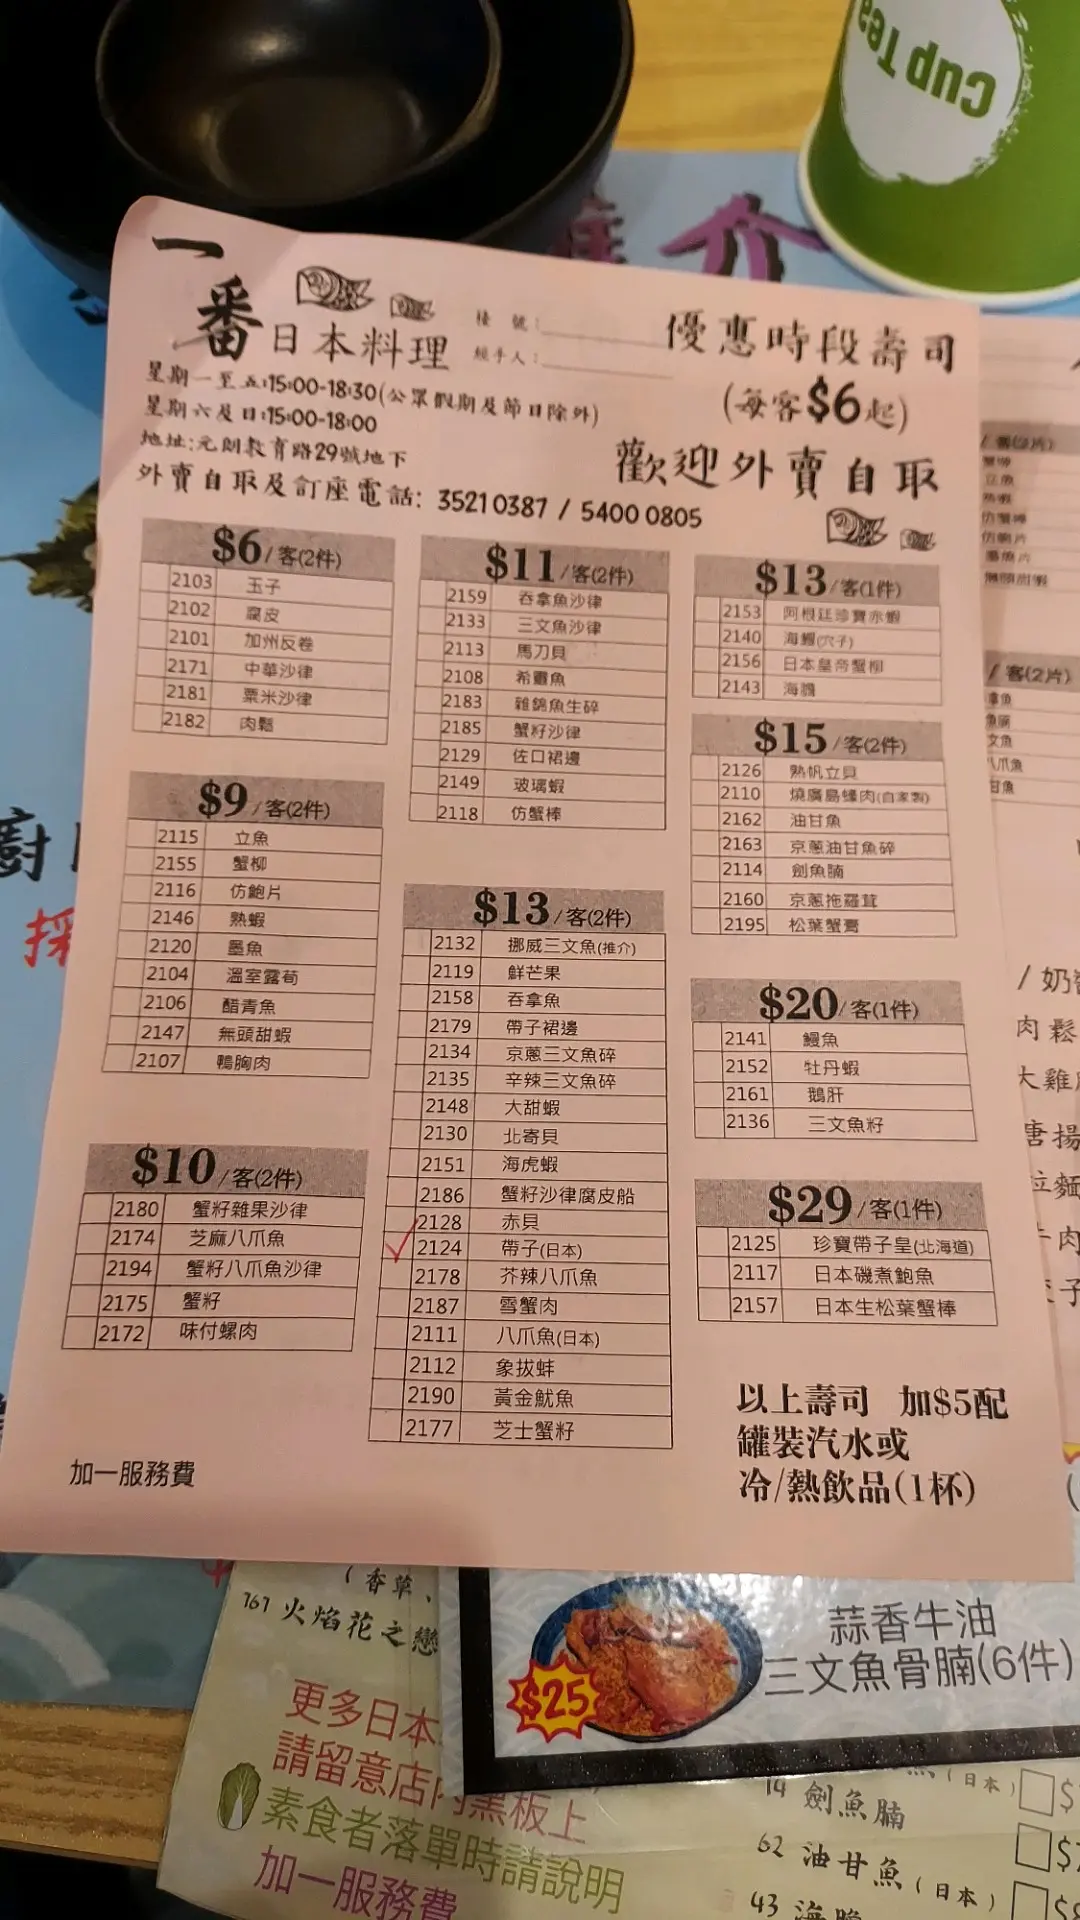 Cup Tea
介
一番日本料理
檯 號:
經手人:
優惠時段壽司
(每客$6起)
星期一至五:15:00-18:30(公眾假期及節日除外)
星期六及日:15:00-18:00
地址:元朗教育路29號地下
歡迎外賣自取
外賣自取及訂座電話: 3521 0387 / 5400 0805
$6/客(2件)
2103 玉子
2102 腐皮
2101 加州反卷
2171 中華沙律
2181 粟米沙律
2182 肉鬆
$9/客(2件)
2115 立魚
2155 蟹柳
2116 仿鮑片
2146 熟蝦
2120 墨魚
2104 溫室露荀
2106 醋青魚
2147 無頭甜蝦
2107 鴨胸肉
$10/客(2件)
2180 蟹籽雜果沙律
2174 芝麻八爪魚
2194 蟹籽八爪魚沙律
2175 蟹籽
2172 味付螺肉
加一服務費
$11/客(2件)
2159 吞拿魚沙律
2133 三文魚沙律
2113 馬刀貝
2108 希靈魚
2183 雜錦魚生碎
2185 蟹籽沙律
2129 佐口裙邊
2149 玻璃蝦
2118 仿蟹棒
$13/客(2件)
2132 挪威三文魚(推介)
2119 鮮芒果
2158 吞拿魚
2179 帶子裙邊
2134 京蔥三文魚碎
2135 辛辣三文魚碎
2148 大甜蝦
2130 北寄貝
2151 海虎蝦
2186 蟹籽沙律腐皮船
2128 赤貝
2124 帶子(日本)
2178 芥辣八爪魚
2187 雪蟹肉
2111 八爪魚(日本)
2112 象拔蚌
2190 黃金魷魚
2177 芝士蟹籽
$13/客(1件)
2153 阿根廷珍寶赤蝦
2140 海鰻(穴子)
2156 日本皇帝蟹柳
2143 海膽
$15/客(2件)
2126 熟帆立貝
2110 燒廣島蠔肉(自家製)
2162 油甘魚
2163 京蔥油甘魚碎
2114 劍魚腩
2160 京蔥拖羅茸
2195 松葉蟹膏
$20/客(1件)
2141 鰻魚
2152 牡丹蝦
2161 鵝肝
2136 三文魚籽
$29/客(1件)
2125 珍寶帶子皇(北海道)
2117 日本磯煮鮑魚
2157 日本生松葉蟹棒
以上壽司 加$5配
罐裝汽水或
冷/熱飲品(1杯)
/ 客(2片)
立魚
熟蝦
仿蟹棒
仿鮑片
墨魚片
無頭甜蝦
/ 客(2片)
拿魚
魚腩
文魚
八爪魚
甘魚
/ 奶
肉鬆
大雞
唐揚
拉麵
牛肉
廚
採
(香草、
161 火焰花之戀
更多日本
請留意店內黑板上
素食者落單時請說明
加一服務費
$25
蒜香牛油
三文魚骨腩(6件)
(日本)
14 劍魚腩
62 油甘魚(日本)
43 海膽